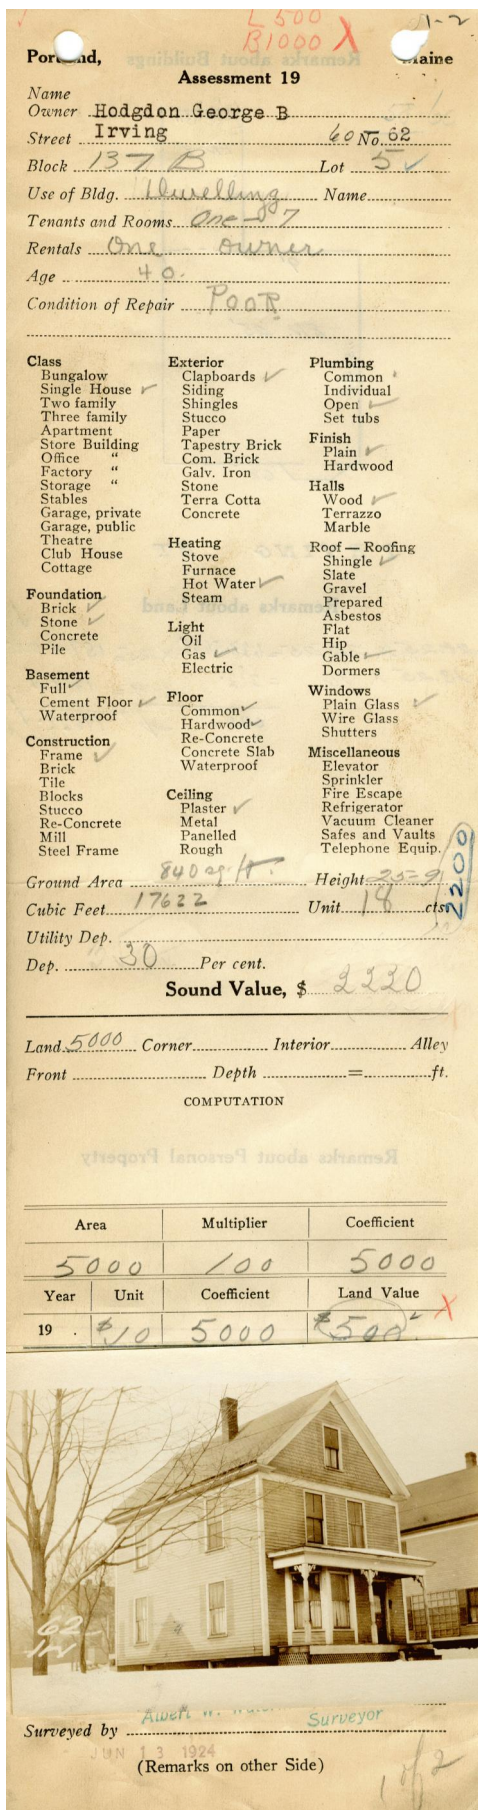 L 500
B 1000 X
1-2
Portland, Maine
Assessment 19
Name
Owner Hodgdon George B
Street Irving 60 No. 62
Block 137 B Lot 5 ✓
Use of Bldg. Dwelling Name
Tenants and Rooms One - 7
Rentals One owner
Age 40.
Condition of Repair POOR
Class
Bungalow
Single House ✓
Two family
Three family
Apartment
Store Building
Office "
Factory "
Storage "
Stables
Garage, private
Garage, public
Theatre
Club House
Cottage
Foundation
Brick ✓
Stone ✓
Concrete
Pile
Basement
Full ✓
Cement Floor ✓
Waterproof
Construction
Frame ✓
Brick
Tile
Blocks
Stucco
Re-Concrete
Mill
Steel Frame
Exterior
Clapboards ✓
Siding
Shingles
Stucco
Paper
Tapestry Brick
Com. Brick
Galv. Iron
Stone
Terra Cotta
Concrete
Heating
Stove
Furnace
Hot Water ✓
Steam
Light
Oil
Gas ✓
Electric
Floor
Common ✓
Hardwood ✓
Re-Concrete
Concrete Slab
Waterproof
Ceiling
Plaster ✓
Metal
Panelled
Rough
Plumbing
Common
Individual
Open ✓
Set tubs
Finish
Plain ✓
Hardwood
Halls
Wood ✓
Terrazzo
Marble
Roof — Roofing
Shingle ✓
Slate
Gravel
Prepared
Asbestos
Flat
Hip
Gable ✓
Dormers
Windows
Plain Glass ✓
Wire Glass
Shutters
Miscellaneous
Elevator
Sprinkler
Fire Escape
Refrigerator
Vacuum Cleaner
Safes and Vaults
Telephone Equip.
2200
Ground Area 840 sq. ft. Height 25-9
Cubic Feet 17622 Unit 18 cts.
Utility Dep.
Dep. 30 Per cent.
Sound Value, $ 2220
Land 5000 Corner Interior Alley
Front Depth = ft.
COMPUTATION
Area Multiplier Coefficient
5000 100 5000
Year Unit Coefficient Land Value
19 . $10 5000 $500 X
62
Surveyor
Surveyed by
JUN 13 1924
(Remarks on other Side)
1 of 2